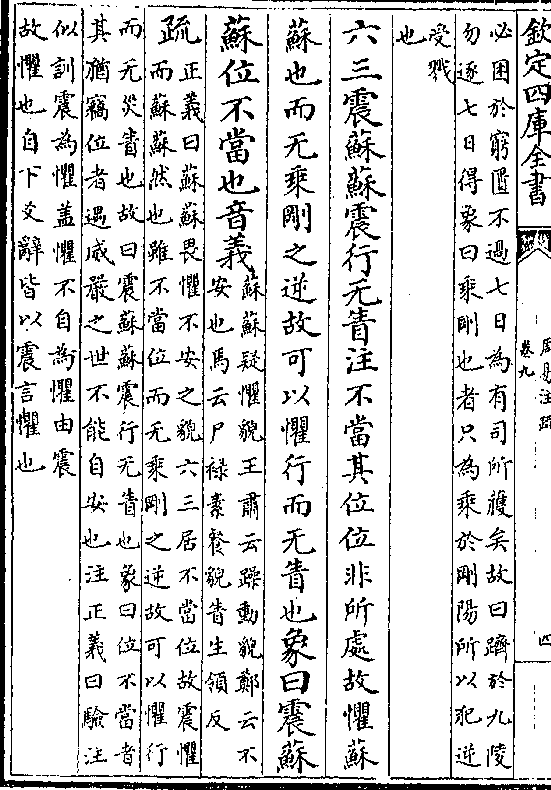 欽定四庫全書
周易注疏
卷九
四
必困於窮匱不過七日為有司所獲矣故曰躋於九陵
勿逐七日得象曰乘剛也者只為乘於剛陽所以犯逆
受戮
也
六三震蘇蘇震行无眚注不當其位位非所處故懼蘇
蘇也而无乘剛之逆故可以懼行而无眚也象曰震蘇
蘇位不當也音義
蘇蘇疑懼貌王肅云躁動貌鄭云不
安也馬云尸禄素餐貌眚生領反
疏
正義曰蘇蘇畏懼不安之貌六三居不當位故震懼
而蘇蘇然也雖不當位而无乘剛之逆故可以懼行
而无災眚也故曰震蘇蘇震行无眚也象曰位不當者
其猶竊位者遇威嚴之世不能自安也注正義曰驗注
似訓震為懼盖懼不自為懼由震
故懼也自下文辭皆以震言懼也